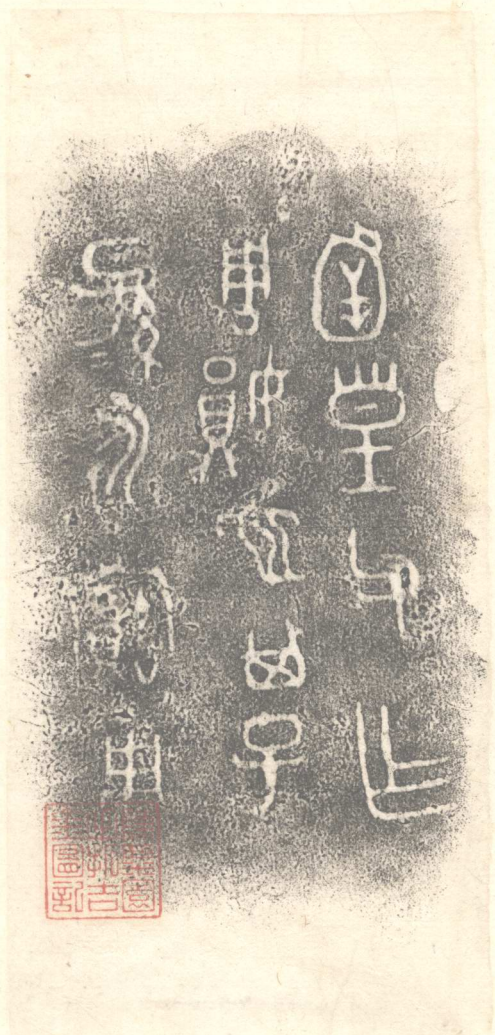 函皇父乍
周妘也其子
孫永寶用